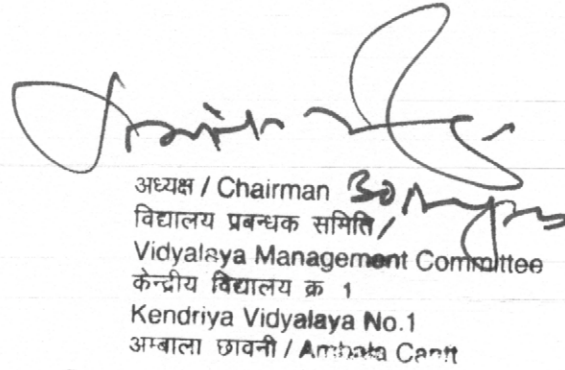 अध्यक्ष / Chairman
विद्यालय प्रबन्धक समिति /
Vidyalaya Management Committee
केन्द्रीय विद्यालय क्र 1
Kendriya Vidyalaya No.1
अम्बाला छावनी / Ambala Cantt